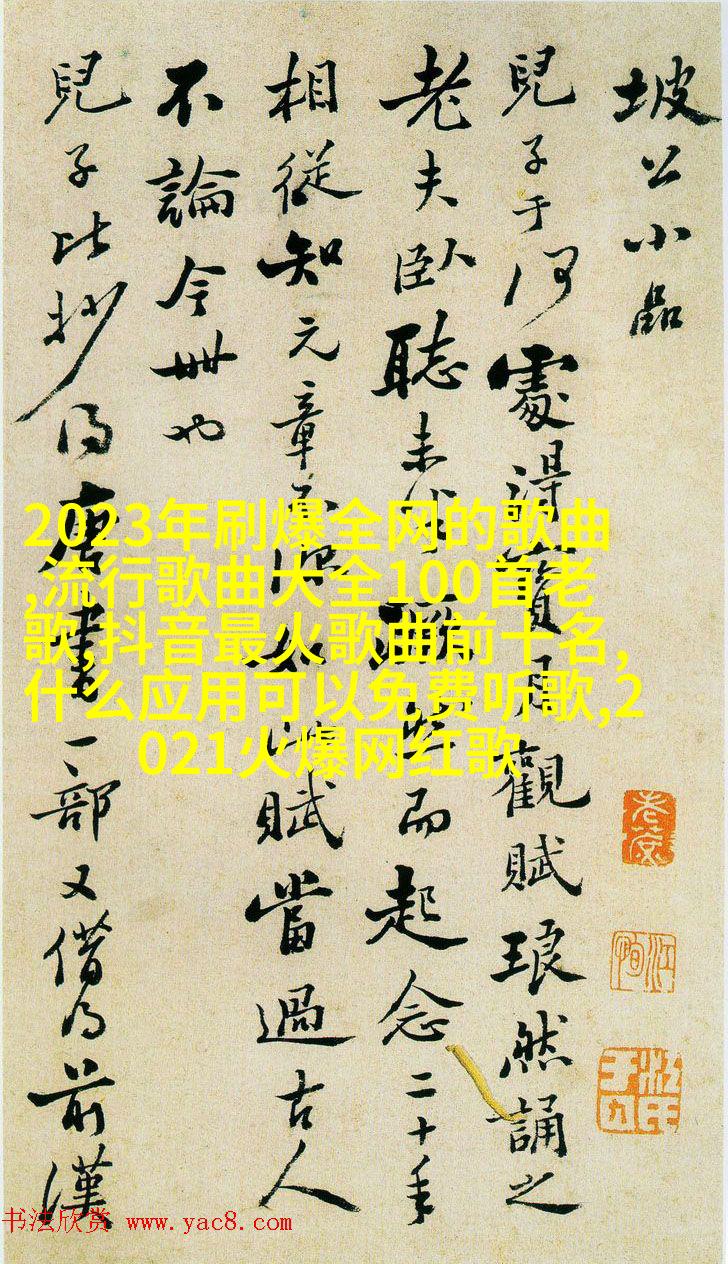 坡公小品
兒子于何處得寶月觀賦琅然誦之
老夫臥聽未半躍然而起念二十年
相從知元章不如此賦當過古人
不論今世也
兒子比抄得唐書一部又借得前漢
2023年刷爆全网的歌曲
,流行歌曲大全100首老
歌,抖音最火歌曲前十名,
什么应用可以免费听歌,2
021火爆网红歌
书法欣赏 www.yac8.com